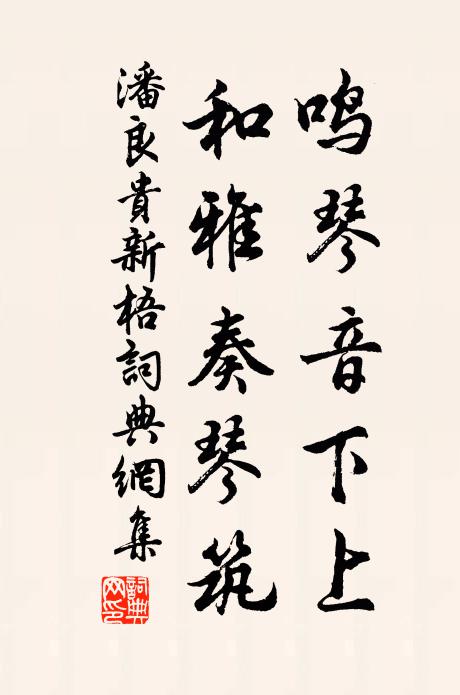 鸣琴音下上
和雅奏琴筑
潘良貴新梧詞典網集
詞典網印